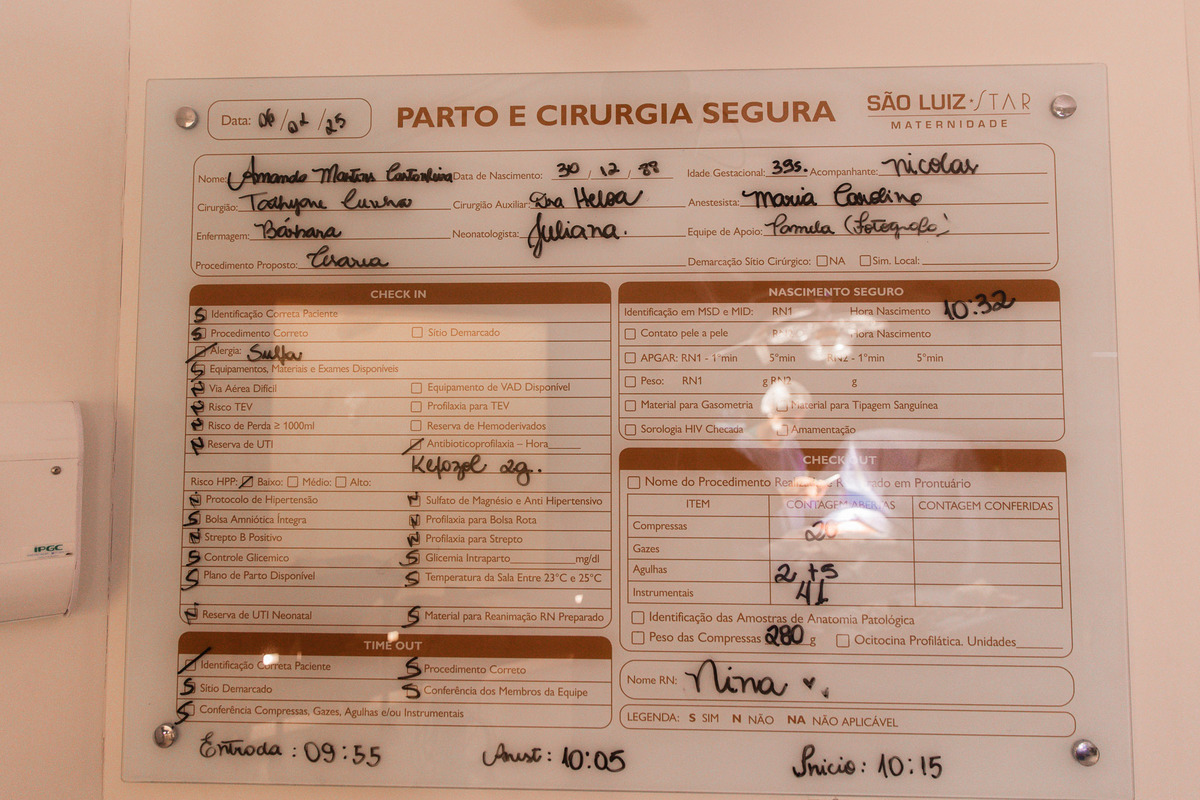 Data: 06/02/25 PARTO E CIRURGIA SEGURA SÃO LUIZ STAR
MATERNIDADE
Nome: Amanda Martins Data de Nascimento: 30 / 12 / 88 Idade Gestacional: 39s. Acompanhante: Nicolas
Cirurgião: Tathyane Cunha Cirurgião Auxiliar: Dra Heloa Anestesista: Maria Carolina
Enfermagem: Bárbara Neonatologista: Juliana. Equipe de Apoio: Pamela (Fotografa)
Procedimento Proposto: Cesaria Demarcação Sítio Cirúrgico: NA Sim. Local:
CHECK IN
S Identificação Correta Paciente
S Procedimento Correto Sítio Demarcado
Alergia: Sulfa
S Equipamentos, Materiais e Exames Disponíveis
N Via Aérea Difícil Equipamento de VAD Disponível
N Risco TEV Profilaxia para TEV
N Risco de Perda ≥ 1000ml Reserva de Hemoderivados
N Reserva de UTI Antibioticoprofilaxia – Hora
Kefazol 2g..
Risco HPP: Baixo: Médio: Alto:
N Protocolo de Hipertensão N Sulfato de Magnésio e Anti Hipertensivo
S Bolsa Amniótica Íntegra N Profilaxia para Bolsa Rota
N Strepto B Positivo N Profilaxia para Strepto
S Controle Glicemico S Glicemia Intraparto mg/dl
S Plano de Parto Disponível S Temperatura da Sala Entre 23°C e 25°C
N Reserva de UTI Neonatal S Material para Reanimação RN Preparado
TIME OUT
Identificação Correta Paciente S Procedimento Correto
S Sítio Demarcado S Conferência dos Membros da Equipe
S Conferência Compressas, Gazes, Agulhas e/ou Instrumentais
NASCIMENTO SEGURO
Identificação em MSD e MID: RN1 Hora Nascimento 10:32
Contato pele a pele Hora Nascimento
APGAR: RN1 - 1°min 5°min RN2 - 1°min 5°min
Peso: RN1 g RN2 g
Material para Gasometria Material para Tipagem Sanguínea
Sorologia HIV Checada Amamentação
CHECK OUT
Nome do Procedimento Realizado e Registrado em Prontuário
ITEM CONTAGEM ABERTAS CONTAGEM CONFERIDAS
Compressas 20
Gazes
Agulhas 2 +5
Instrumentais 41
Identificação das Amostras de Anatomia Patológica
Peso das Compressas 280 g Ocitocina Profilática. Unidades
Nome RN: Nina ♥.
LEGENDA: S SIM N NÃO NA NÃO APLICÁVEL
Entrada : 09:55 Anest: 10:05 Início: 10:15
IPGC